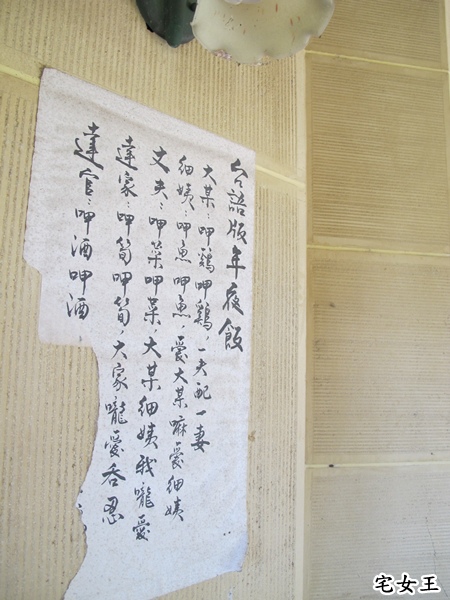 台語版年夜飯
大某:呷鷄呷鷄,一夫配一妻
細姨:呷魚呷魚,愛大某嘛愛細姨
丈夫:呷菜呷菜,大某細姨我嚨愛
達家:呷筍呷筍,大家嚨愛吞忍
達官:呷酒呷酒
宅女王